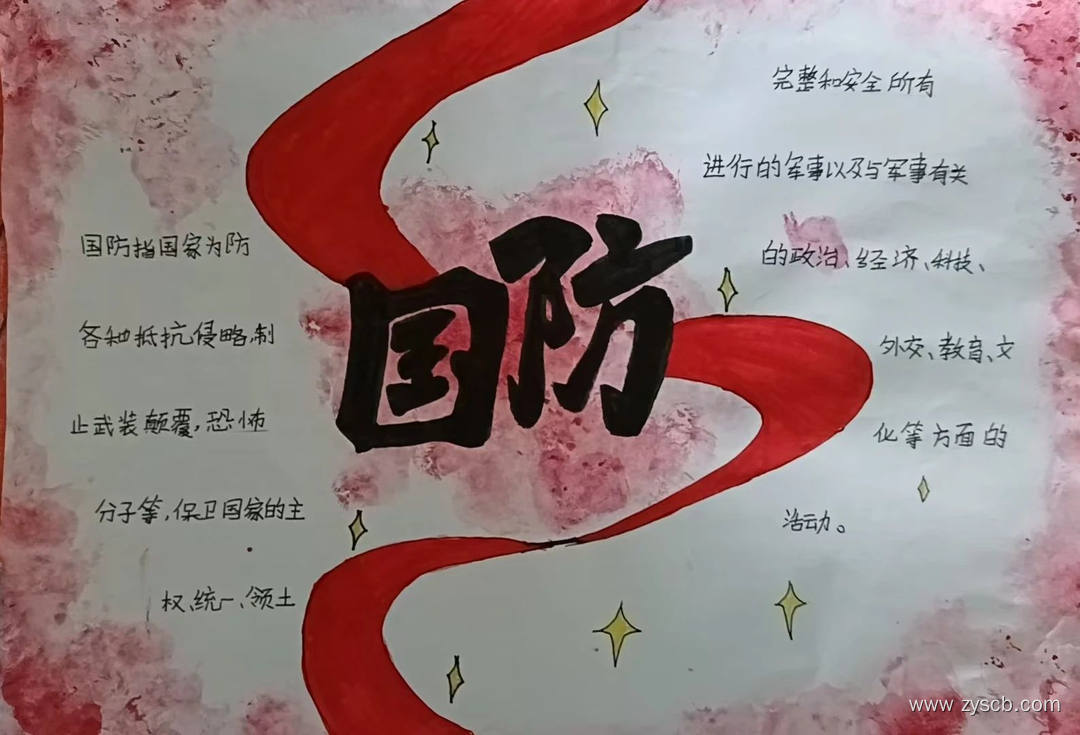 国防
国防指国家为防
各种抵抗侵略,制
止武装颠覆,恐怖
分子等,保卫国家的主
权、统一、领土
完整和安全所有
进行的军事以及与军事有关
的政治、经济、科技、
外交、教育、文
化等方面的
活动。
www.zyscb.com